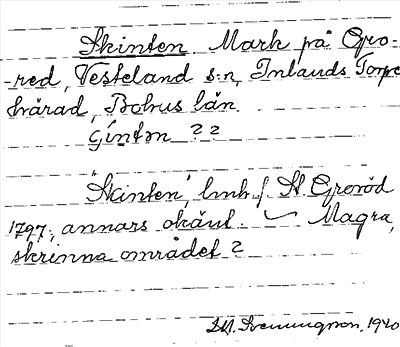 Skinten Mark på Gro-
-red, Vesteland s:n, Inlands Torpe
härad, Bohus län.
Gintøn ??
"Skinten", lmh f. St Groröd
1797; annars okänt. Magra,
skrinna området?
1940